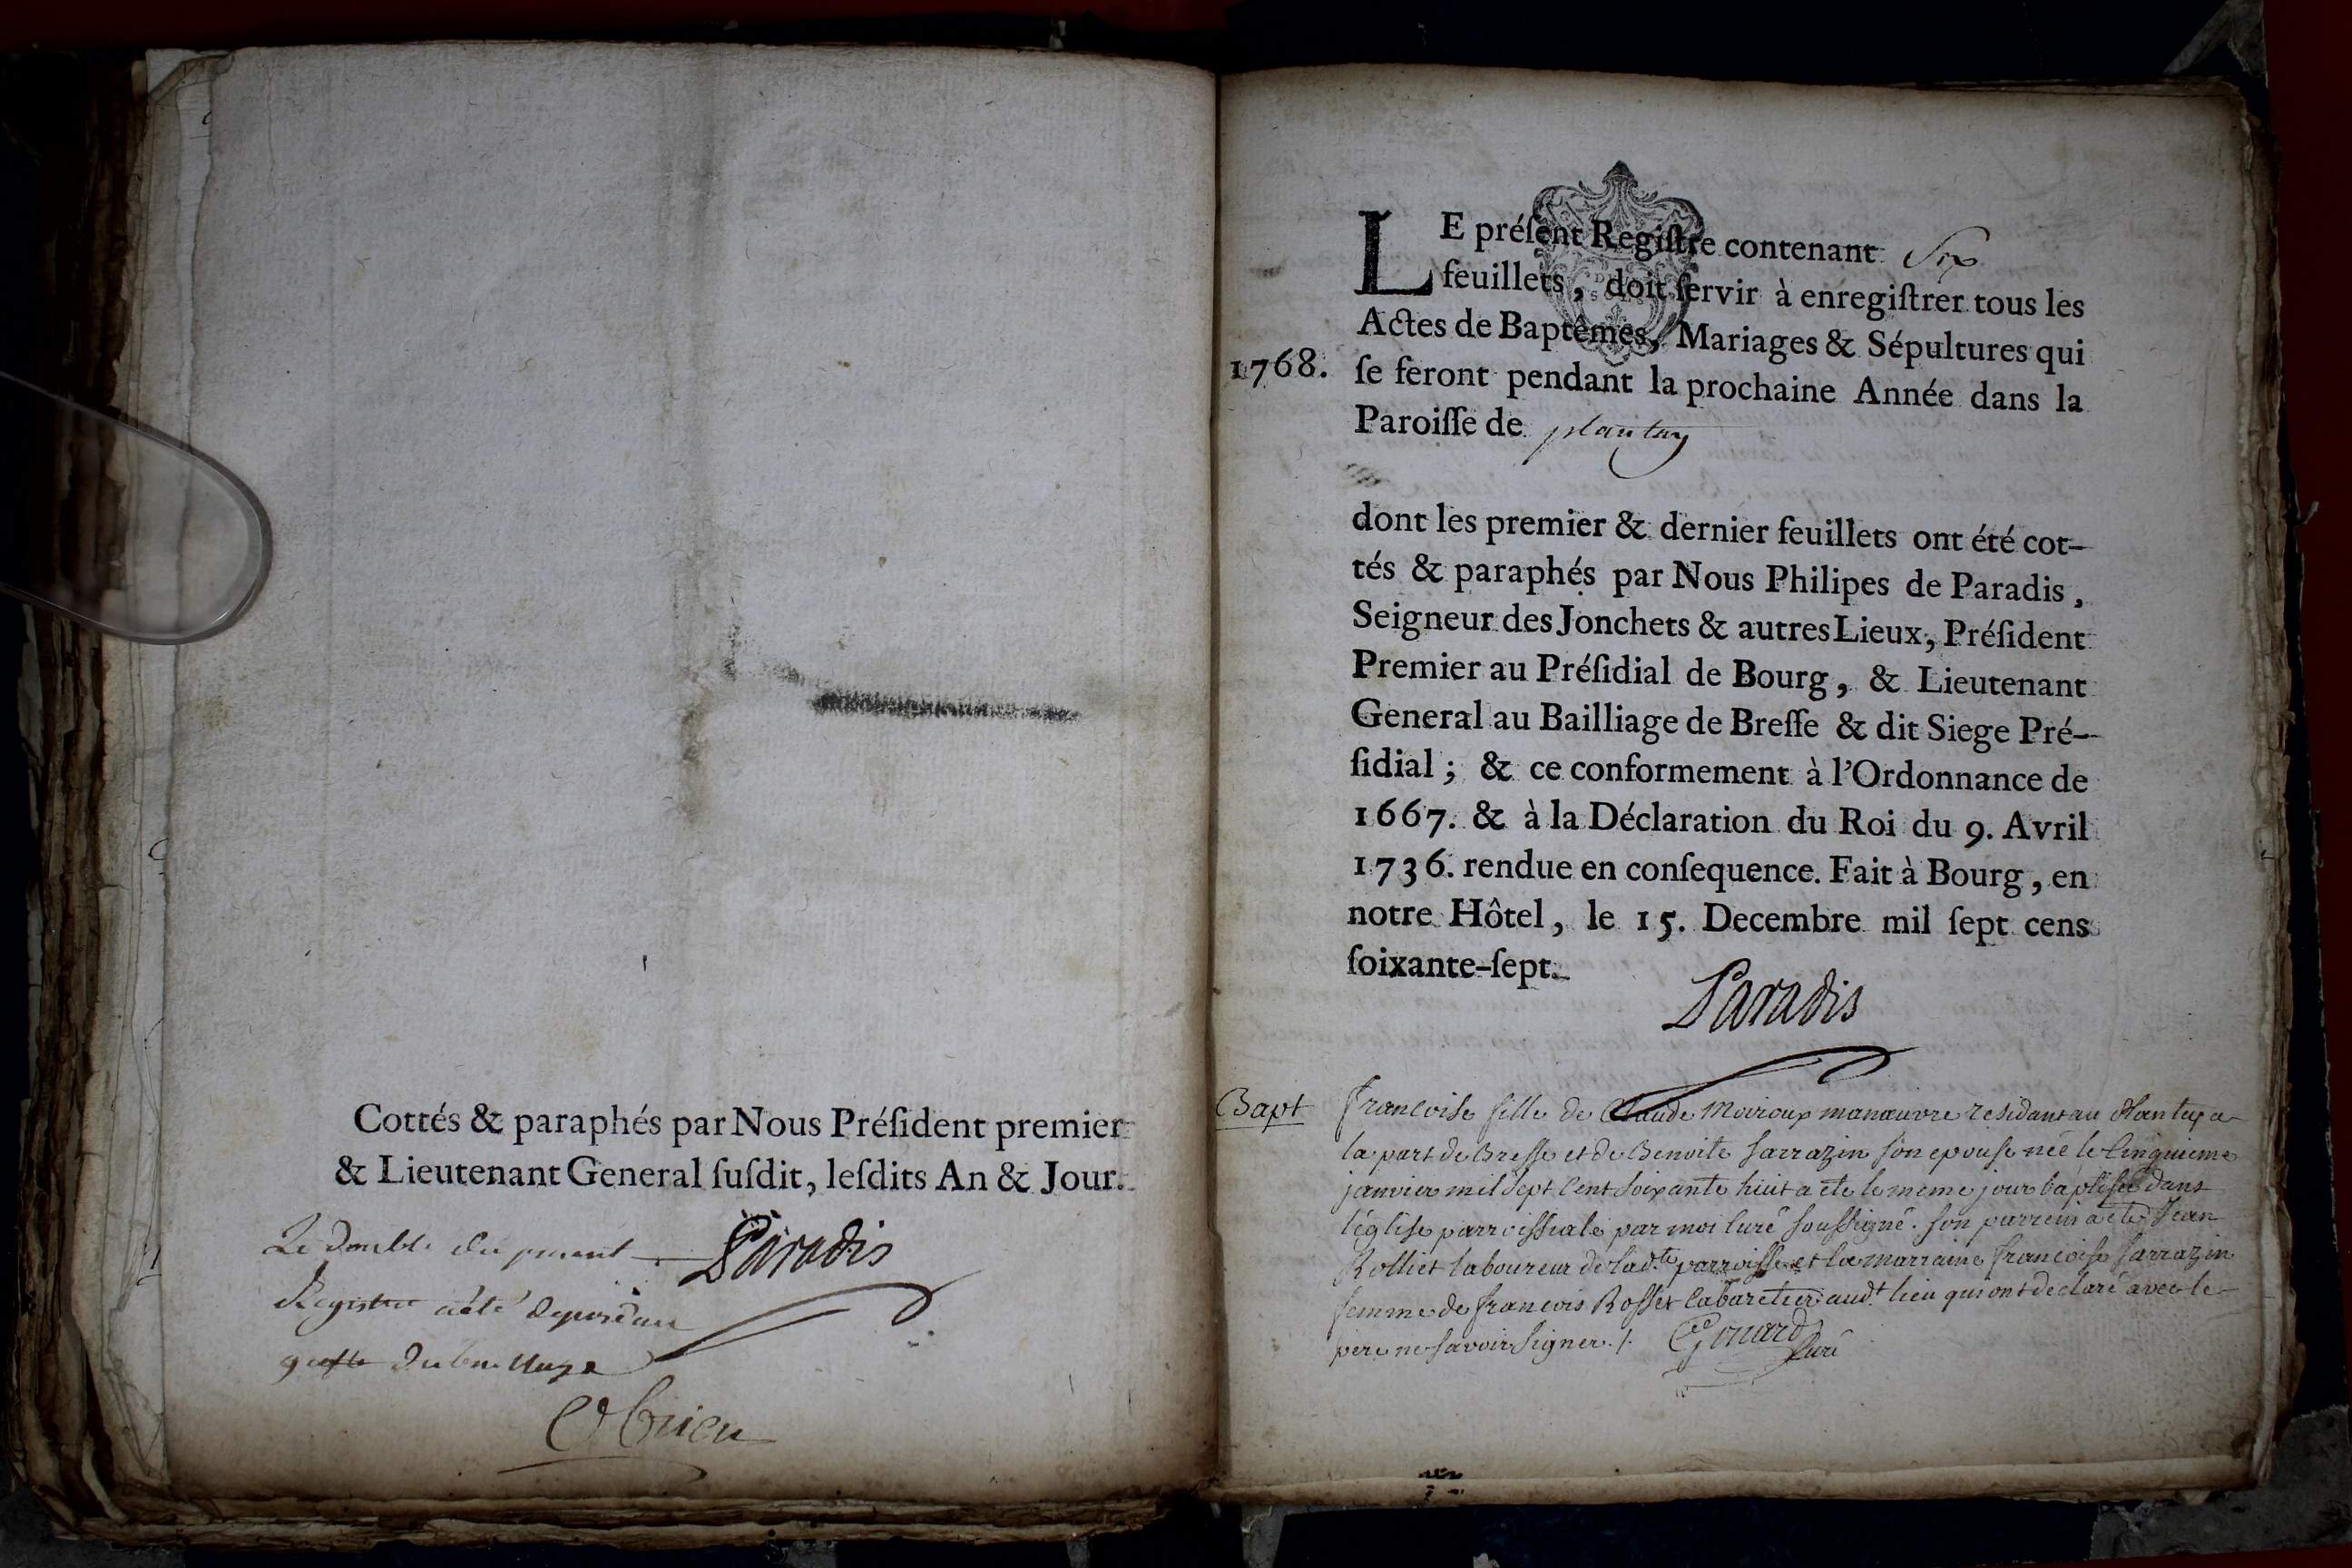 Cottés & paraphés par Nous Préſident premier
& Lieutenant General ſuſdit, leſdits An & Jour.
Le double du present
Paradis
Registre a été deposé au
greffe du bailliage
LE préſent Regiſtre contenant Six
feuillets, doit ſervir à enregiſtrer tous les
Actes de Baptêmes, Mariages & Sépultures qui
1768. ſe feront pendant la prochaine Année dans la
Paroiſſe de plantay
dont les premier & dernier feuillets ont été cot-
tés & paraphés par Nous Philipes de Paradis,
Seigneur des Jonchets & autres Lieux, Préſident
Premier au Préſidial de Bourg, & Lieutenant
General au Bailliage de Breſſe & dit Siege Pré-
ſidial; & ce conformement à l'Ordonnance de
1667. & à la Déclaration du Roi du 9. Avril
1736. rendue en conſequence. Fait à Bourg, en
notre Hôtel, le 15. Decembre mil ſept cens
ſoixante-ſept.
Paradis
Bapt francoise fille de Claude Moiroux manœuvre residant au Plantay a
la part de Bresse et de Benoite sarrazin son epouse née le cinquieme
janvier mil sept cent soixante huit a ete le meme jour baptisée dans
l'église parroissiale par moi curé soussigné. son parrein a ete Jean
Rolliet laboureur de lad.te parroisse et la marraine francoise sarrazin
femme de francois Rosset cabaretier aud.t lieu qui ont declaré avec le
pere ne savoir signer ./. Gonard
curé